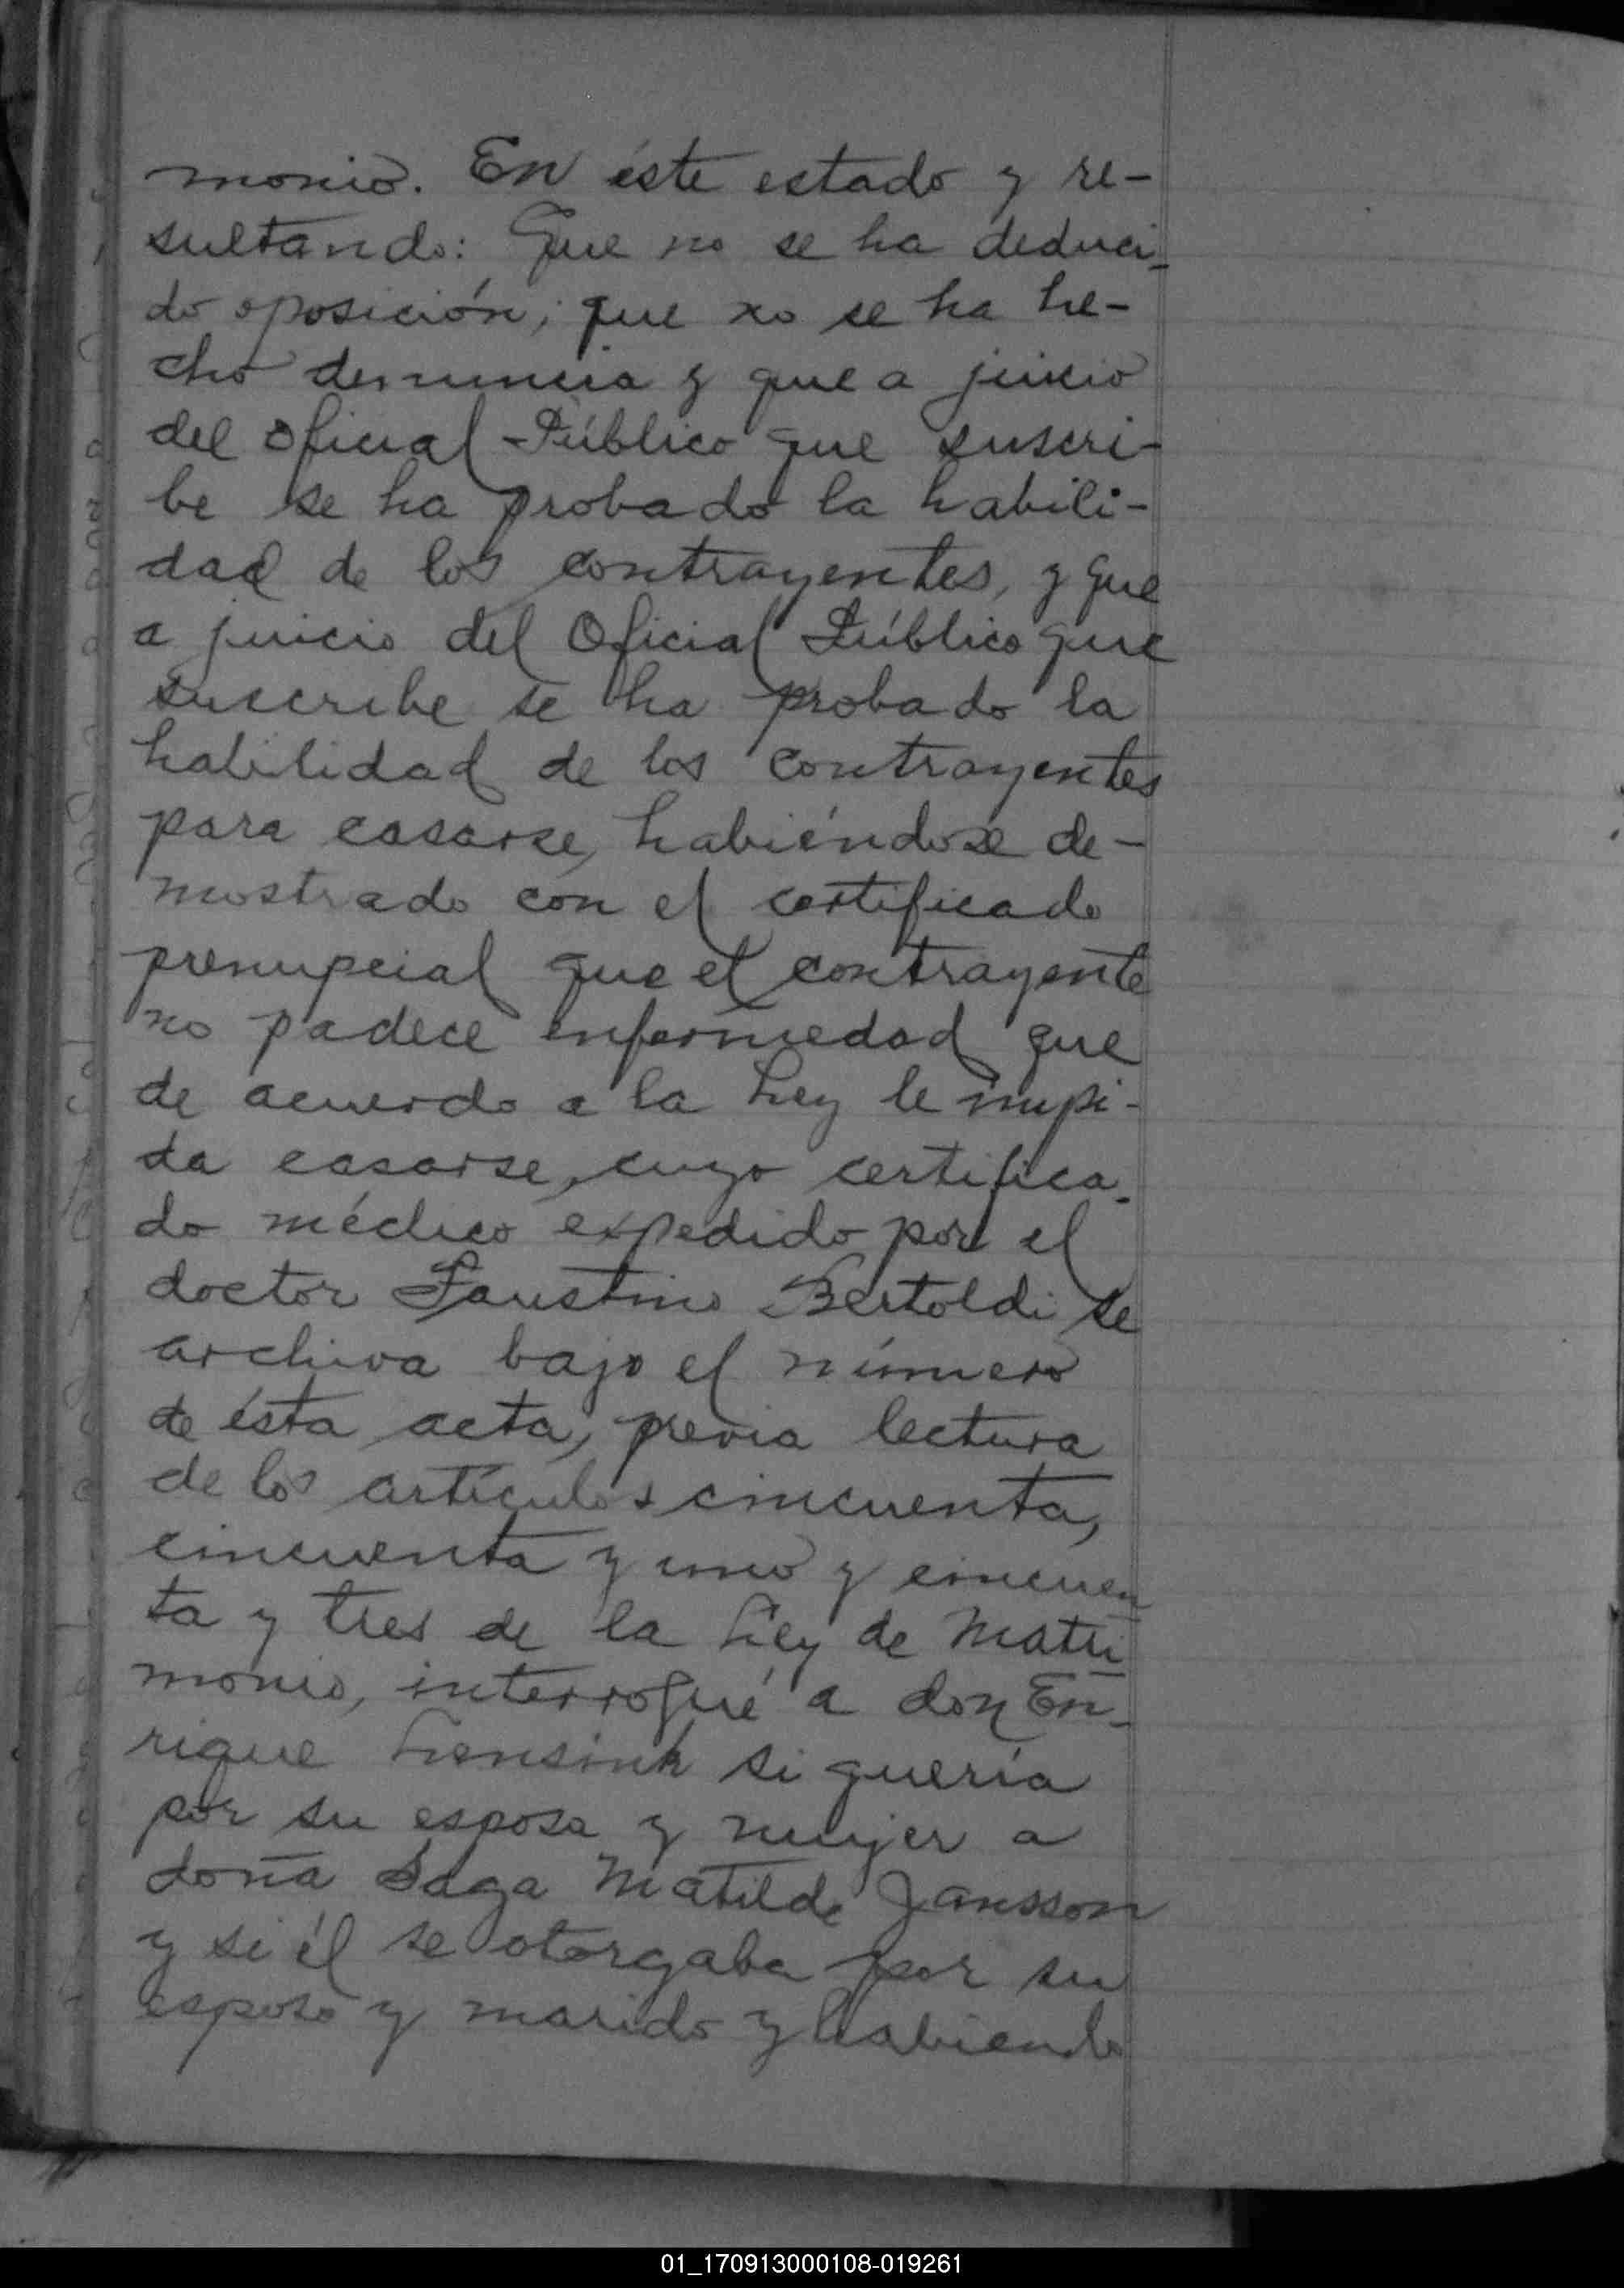 monio. En éste estado y re-
sultando: Que no se ha deduci-
do oposición; que no se ha he-
cho denuncia y que a juicio
del Oficial Público que suscri-
be se ha probado la habili-
dad de los contrayentes, y que
a juicio del Oficial Público que
suscribe se ha probado la
habilidad de los contrayentes
para casarse, habiéndose de-
mostrado con el certificado
prenupcial que el contrayente
no padece enfermedad que
de acuerdo a la Ley le impi-
da casarse, cuyo certifica-
do médico expedido por el
doctor Faustino Bertoldi se
archiva bajo el número
de ésta acta, previa lectura
de los artículos cincuenta,
cincuenta y uno y cincuen
ta y tres de la Ley de Matri
monio, interrogué a don En-
rique Lensink si quería
por su esposa y mujer a
doña Saga Matilde Jansson
y si él se otorgaba por su
esposo y marido y habiendo
01_170913000108-019261